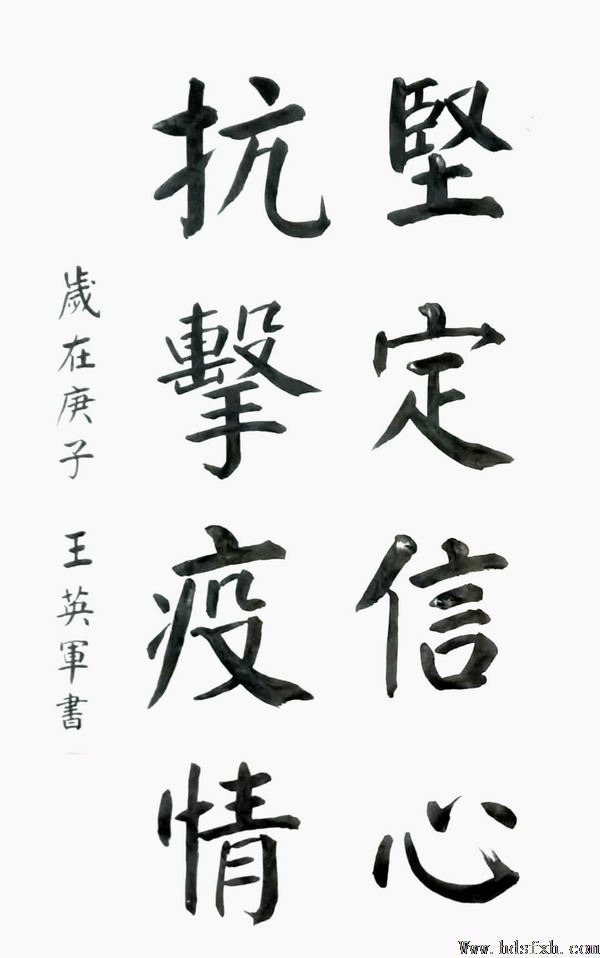 堅定信心
抗擊疫情
歲在庚子 王英軍書
Www.hdsfxh.com